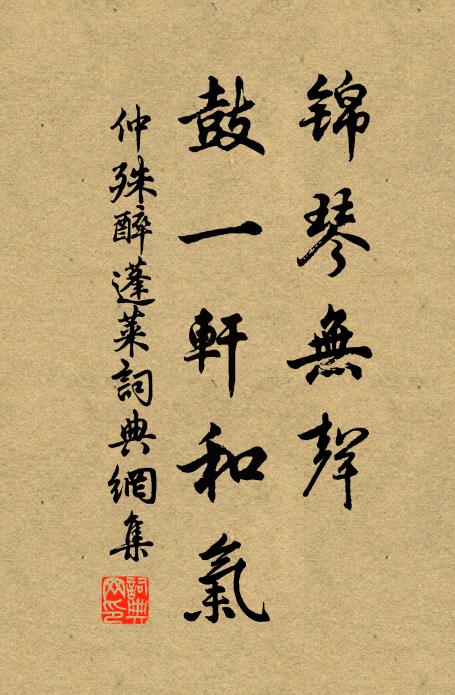 锦琴無聲
鼓一軒和氣
仲殊醉蓬萊詞典網集
詞典网印